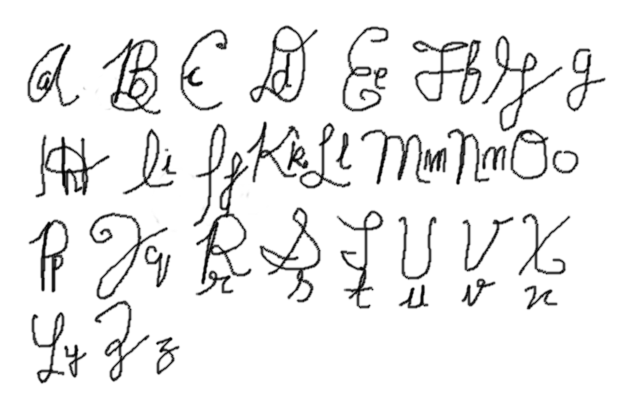 Aa Bb Cc Dd Ee Ff Gg
Hh Ii Jj Kk Ll Mm Nn Oo
Pp Qq Rr Ss Tt Uu Vv Xx
Yy Zz